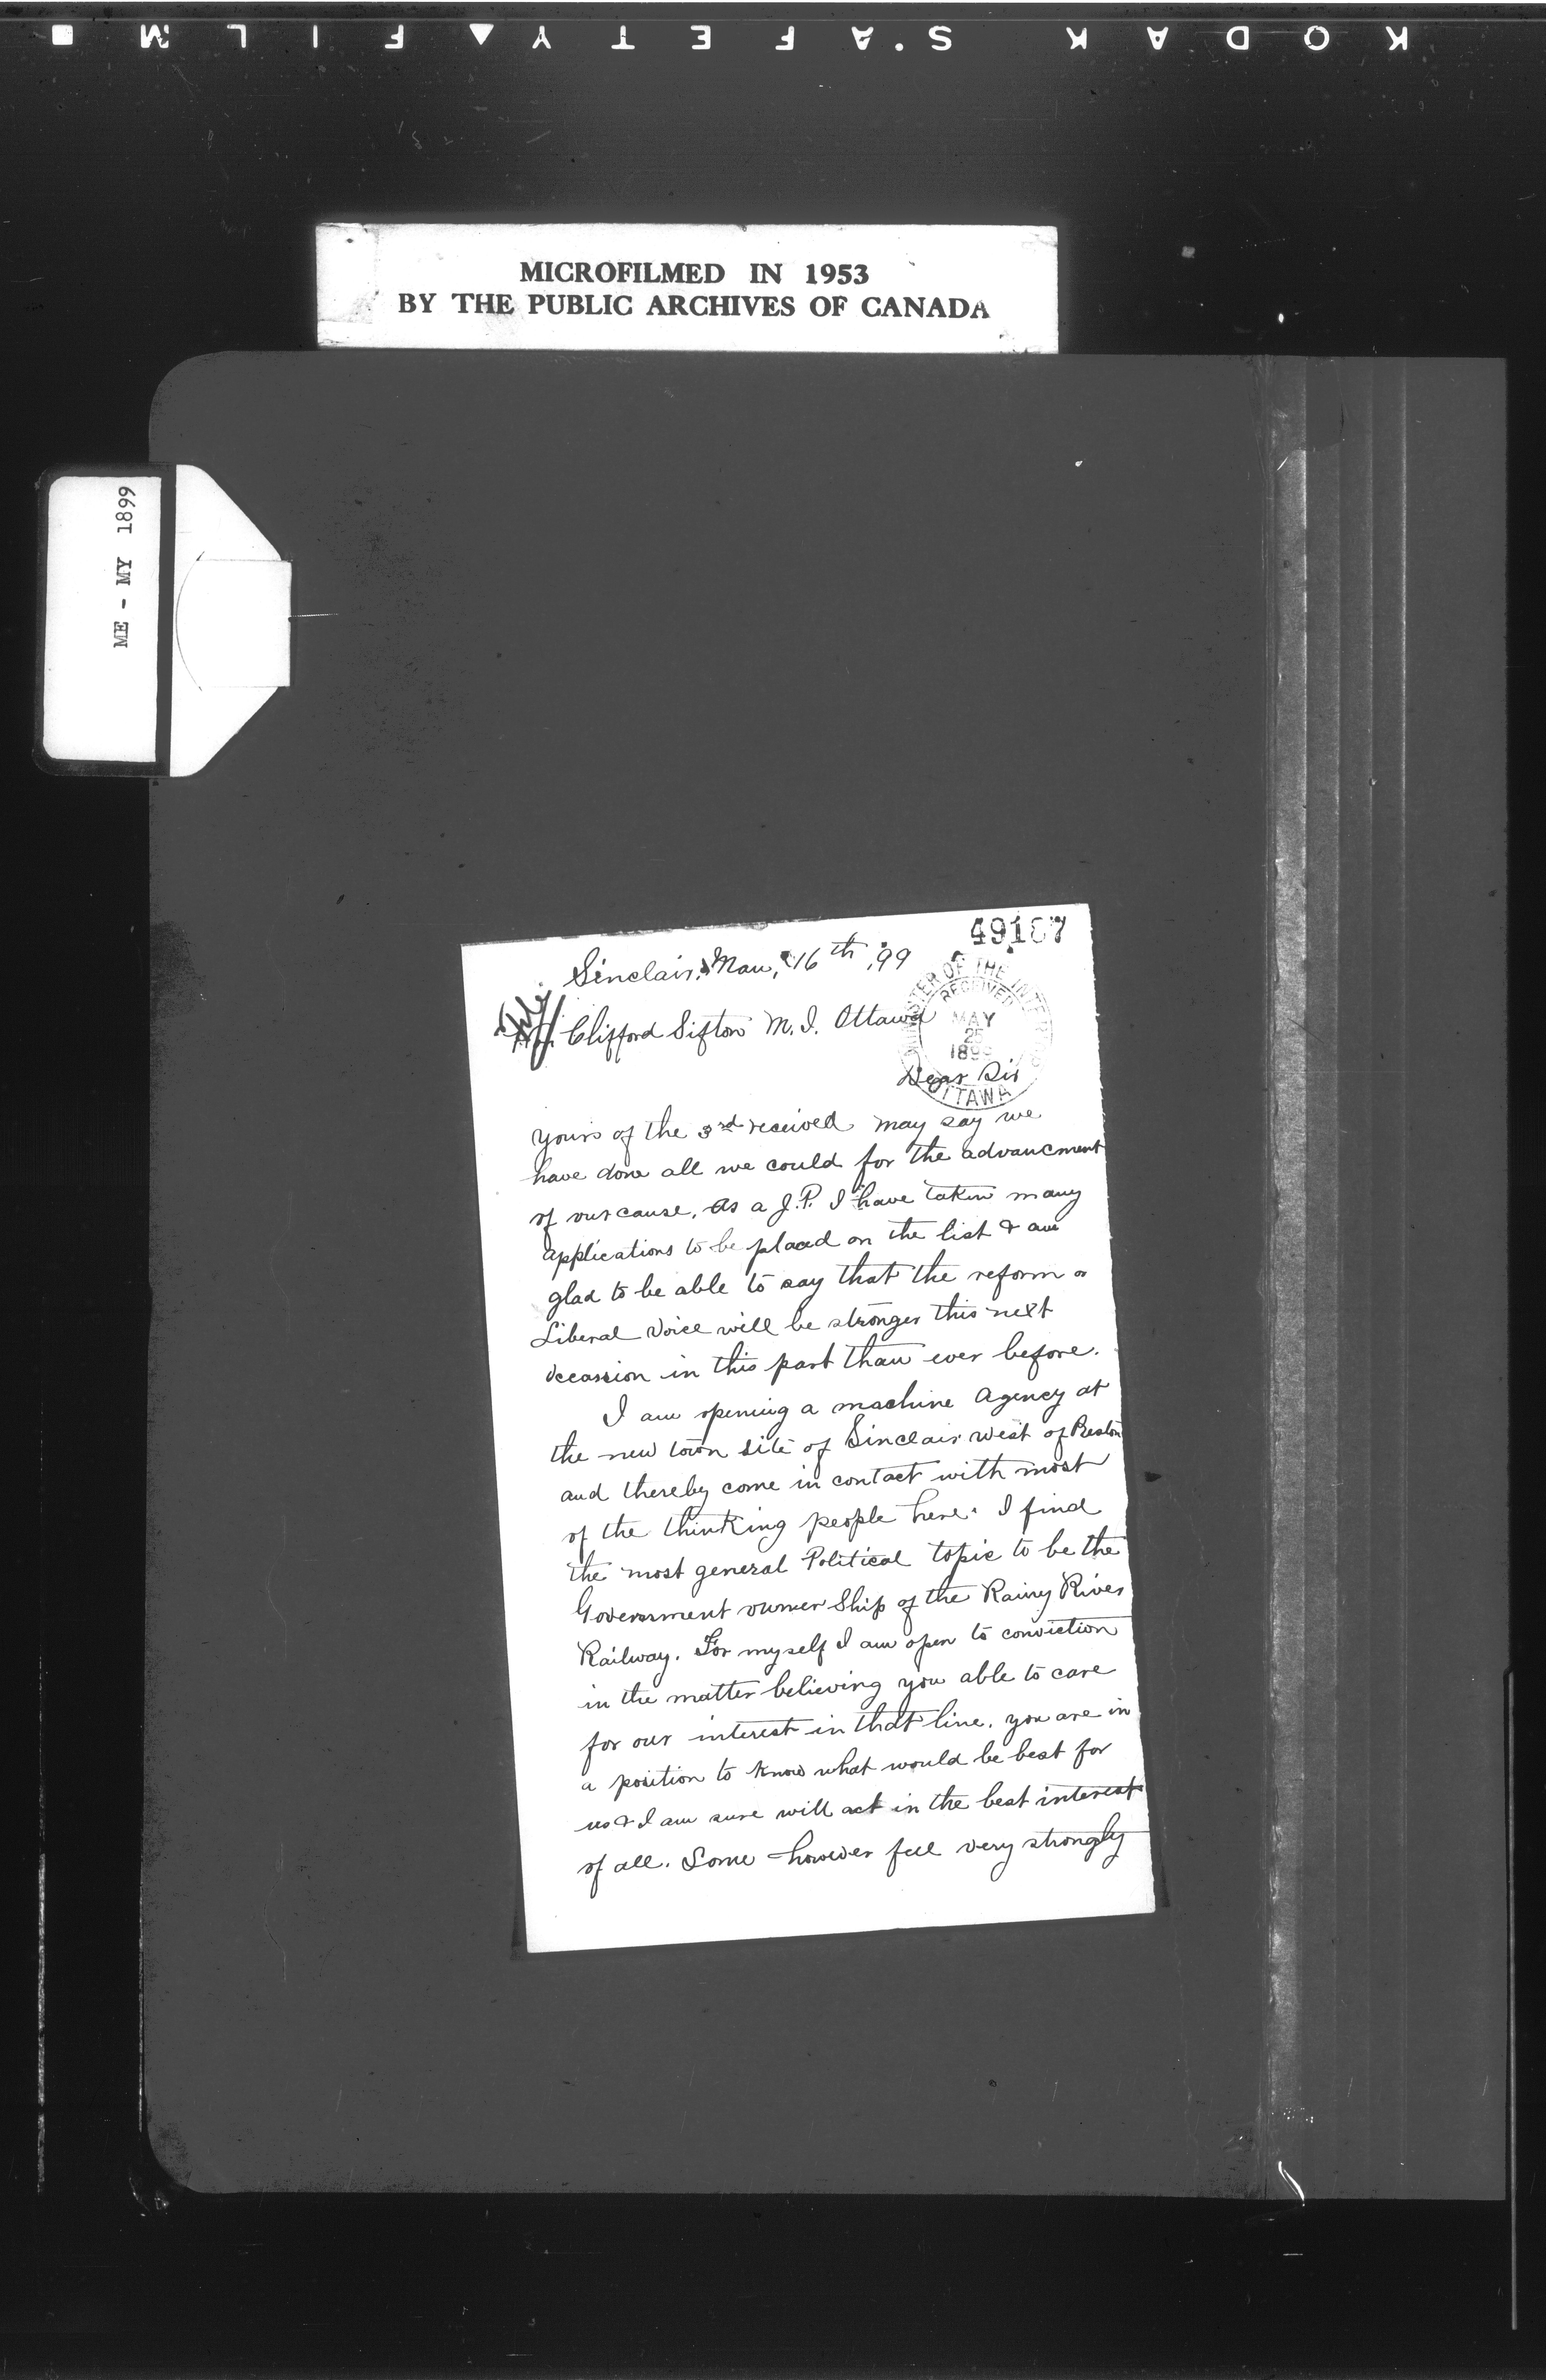 KODAK S'AFETY ▲ FILM ■
MICROFILMED IN 1953
BY THE PUBLIC ARCHIVES OF CANADA
ME - MY 1899
49167
Sinclair, Man, 16th, 99
File
Clifford Sifton M.I. Ottawa
MINISTER OF THE INTERIOR
RECEIVED
MAY
25
1899
OTTAWA
Dear Sir
Yours of the 3rd received may say we
have done all we could for the advancment
of our cause. As a J.P. I have taken many
applications to be placed on the list & am
glad to be able to say that the reform or
Liberal Voice will be stronger this next
occassion in this part than ever before.
I am opening a machine Agency at
the new town site of Sinclair west of Reston
and thereby come in contact with most
of the thinking people here. I find
the most general Political topic to be the
Government owner Ship of the Rainy River
Railway. For myself I am open to conviction
in the matter believing you able to care
for our interest in that line. you are in
a position to know what would be best for
us & I am sure will act in the best interest
of all. Some however feel very strongly